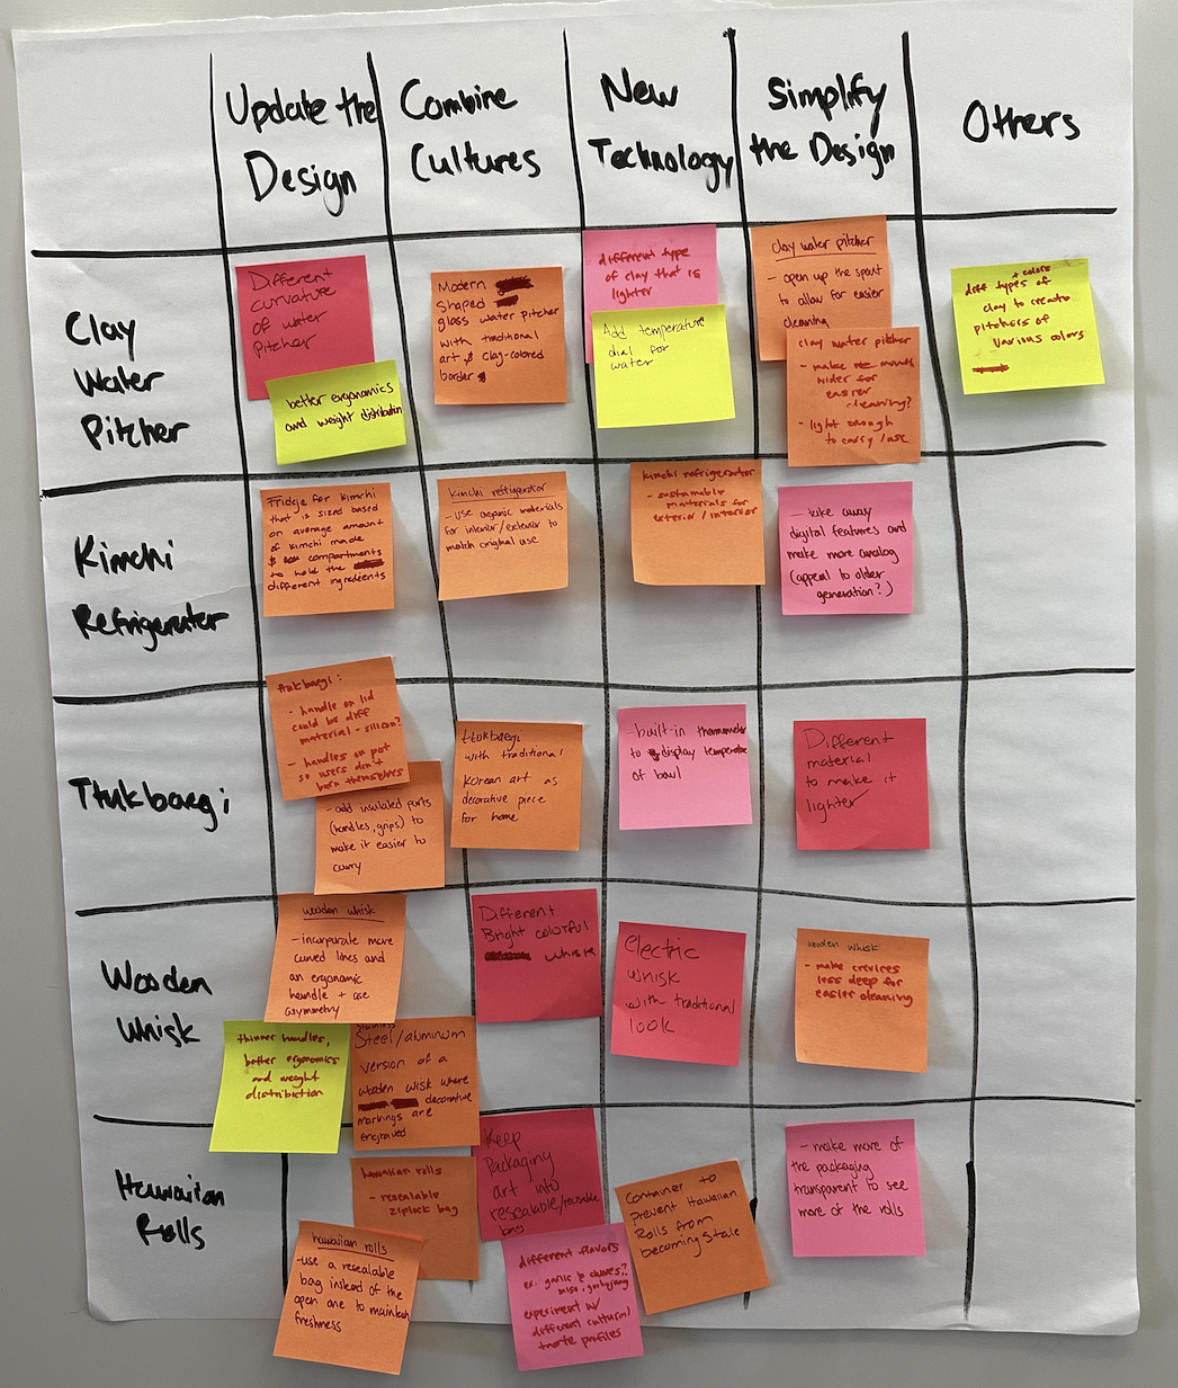 Update the
Design
Combine
Cultures
New
Technology
Simplify
the Design
Others
Clay
Water
Pitcher
Different
curvature
of water
Pitcher
better ergonomics
and weight distribution
Modern
Shaped
glass water pitcher
with traditional
art & clay-colored
border
different type
of clay that is
lighter
Add temperature
dial for
water
clay water pitcher
- open up the spout
to allow for easier
cleaning
clay water pitcher
- make mouth
wider for
easier
cleaning?
- light enough
to carry/use
+ colors
diff types of
clay to create
pitchers of
various colors
Kimchi
Refrigerator
Fridge for kimchi
that is sized based
on average amount
of kimchi made
& compartments
to hold the
different ingredients
kimchi refrigerator
- use organic materials
for interior/exterior to
match original use
kimchi refrigerator
- sustainable
materials for
exterior/interior
- take away
digital features and
make more analog
(appeal to older
generation?)
Ttukbaegi
ttukbaegi:
- handle on lid
could be diff
material - silicon?
- handles on pot
so users don't
burn themselves
- add insulated parts
(handles, grips) to
make it easier to
carry
ttukbaegi
with traditional
Korean art as
decorative piece
for home
- built-in thermometer
to display temperature
of bowl
Different
material
to make it
lighter
Wooden
Whisk
wooden whisk
- incorporate more
curved lines and
an ergonomic
handle + use
asymmetry
thinner handles,
better ergonomics
and weight
distribution
Steel/aluminum
version of a
wooden wisk where
decorative
markings are
engraved
Different
Bright colorful
whisk
Electric
whisk
with traditional
look
wooden whisk
- make crevices
less deep for
easier cleaning
Hawaiian
Rolls
hawaiian rolls
- resealable
ziplock bag
hawaiian rolls
- use a resealable
bag instead of the
open one to maintain
freshness
Keep
Packaging
art into
resealable/reusable
bag
different flavors
ex. garlic & chives?
miso, gochujang
experiment w/
different cultural
taste profiles
Container to
prevent Hawaiian
Rolls from
becoming stale
- make more of
the packaging
transparent to see
more of the rolls